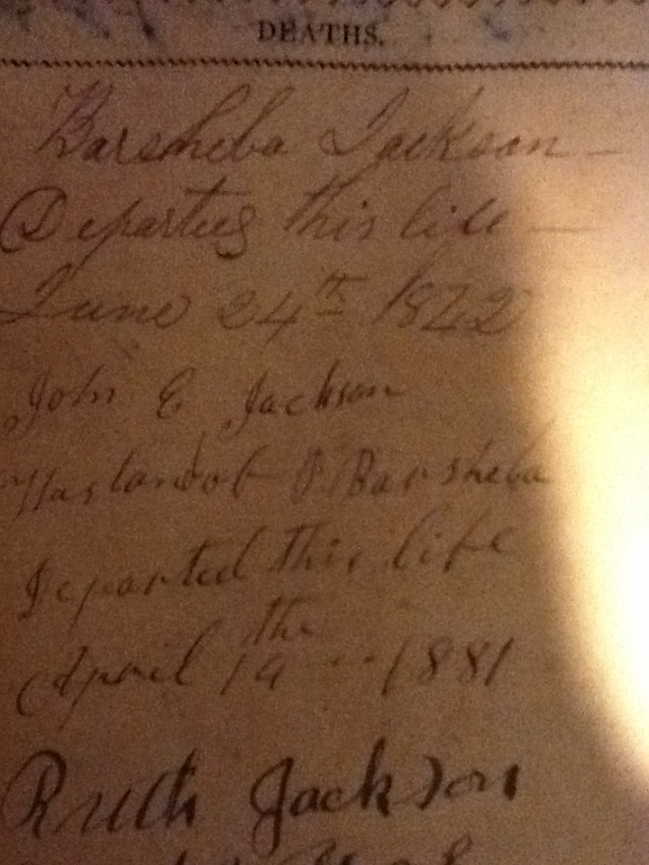 DEATHS.
Barsheba Jackson
Departed this life
June 24th
John E Jackson
Barsheba
Departed this life
the
April 1881
Ruth Jackson